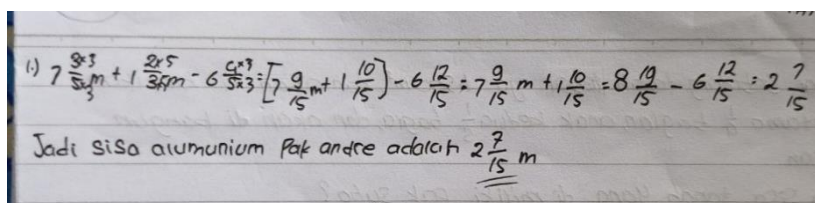 1.) 7 3×3/5×3 m + 1 2×5/3×5 m - 6 4×3/5×3 = [7 9/15 m + 1 10/15] - 6 12/15 = 7 9/15 m + 1 10/15 = 8 19/15 - 6 12/15 = 2 7/15
Jadi sisa alumunium Pak andre adalah 2 7/15 m